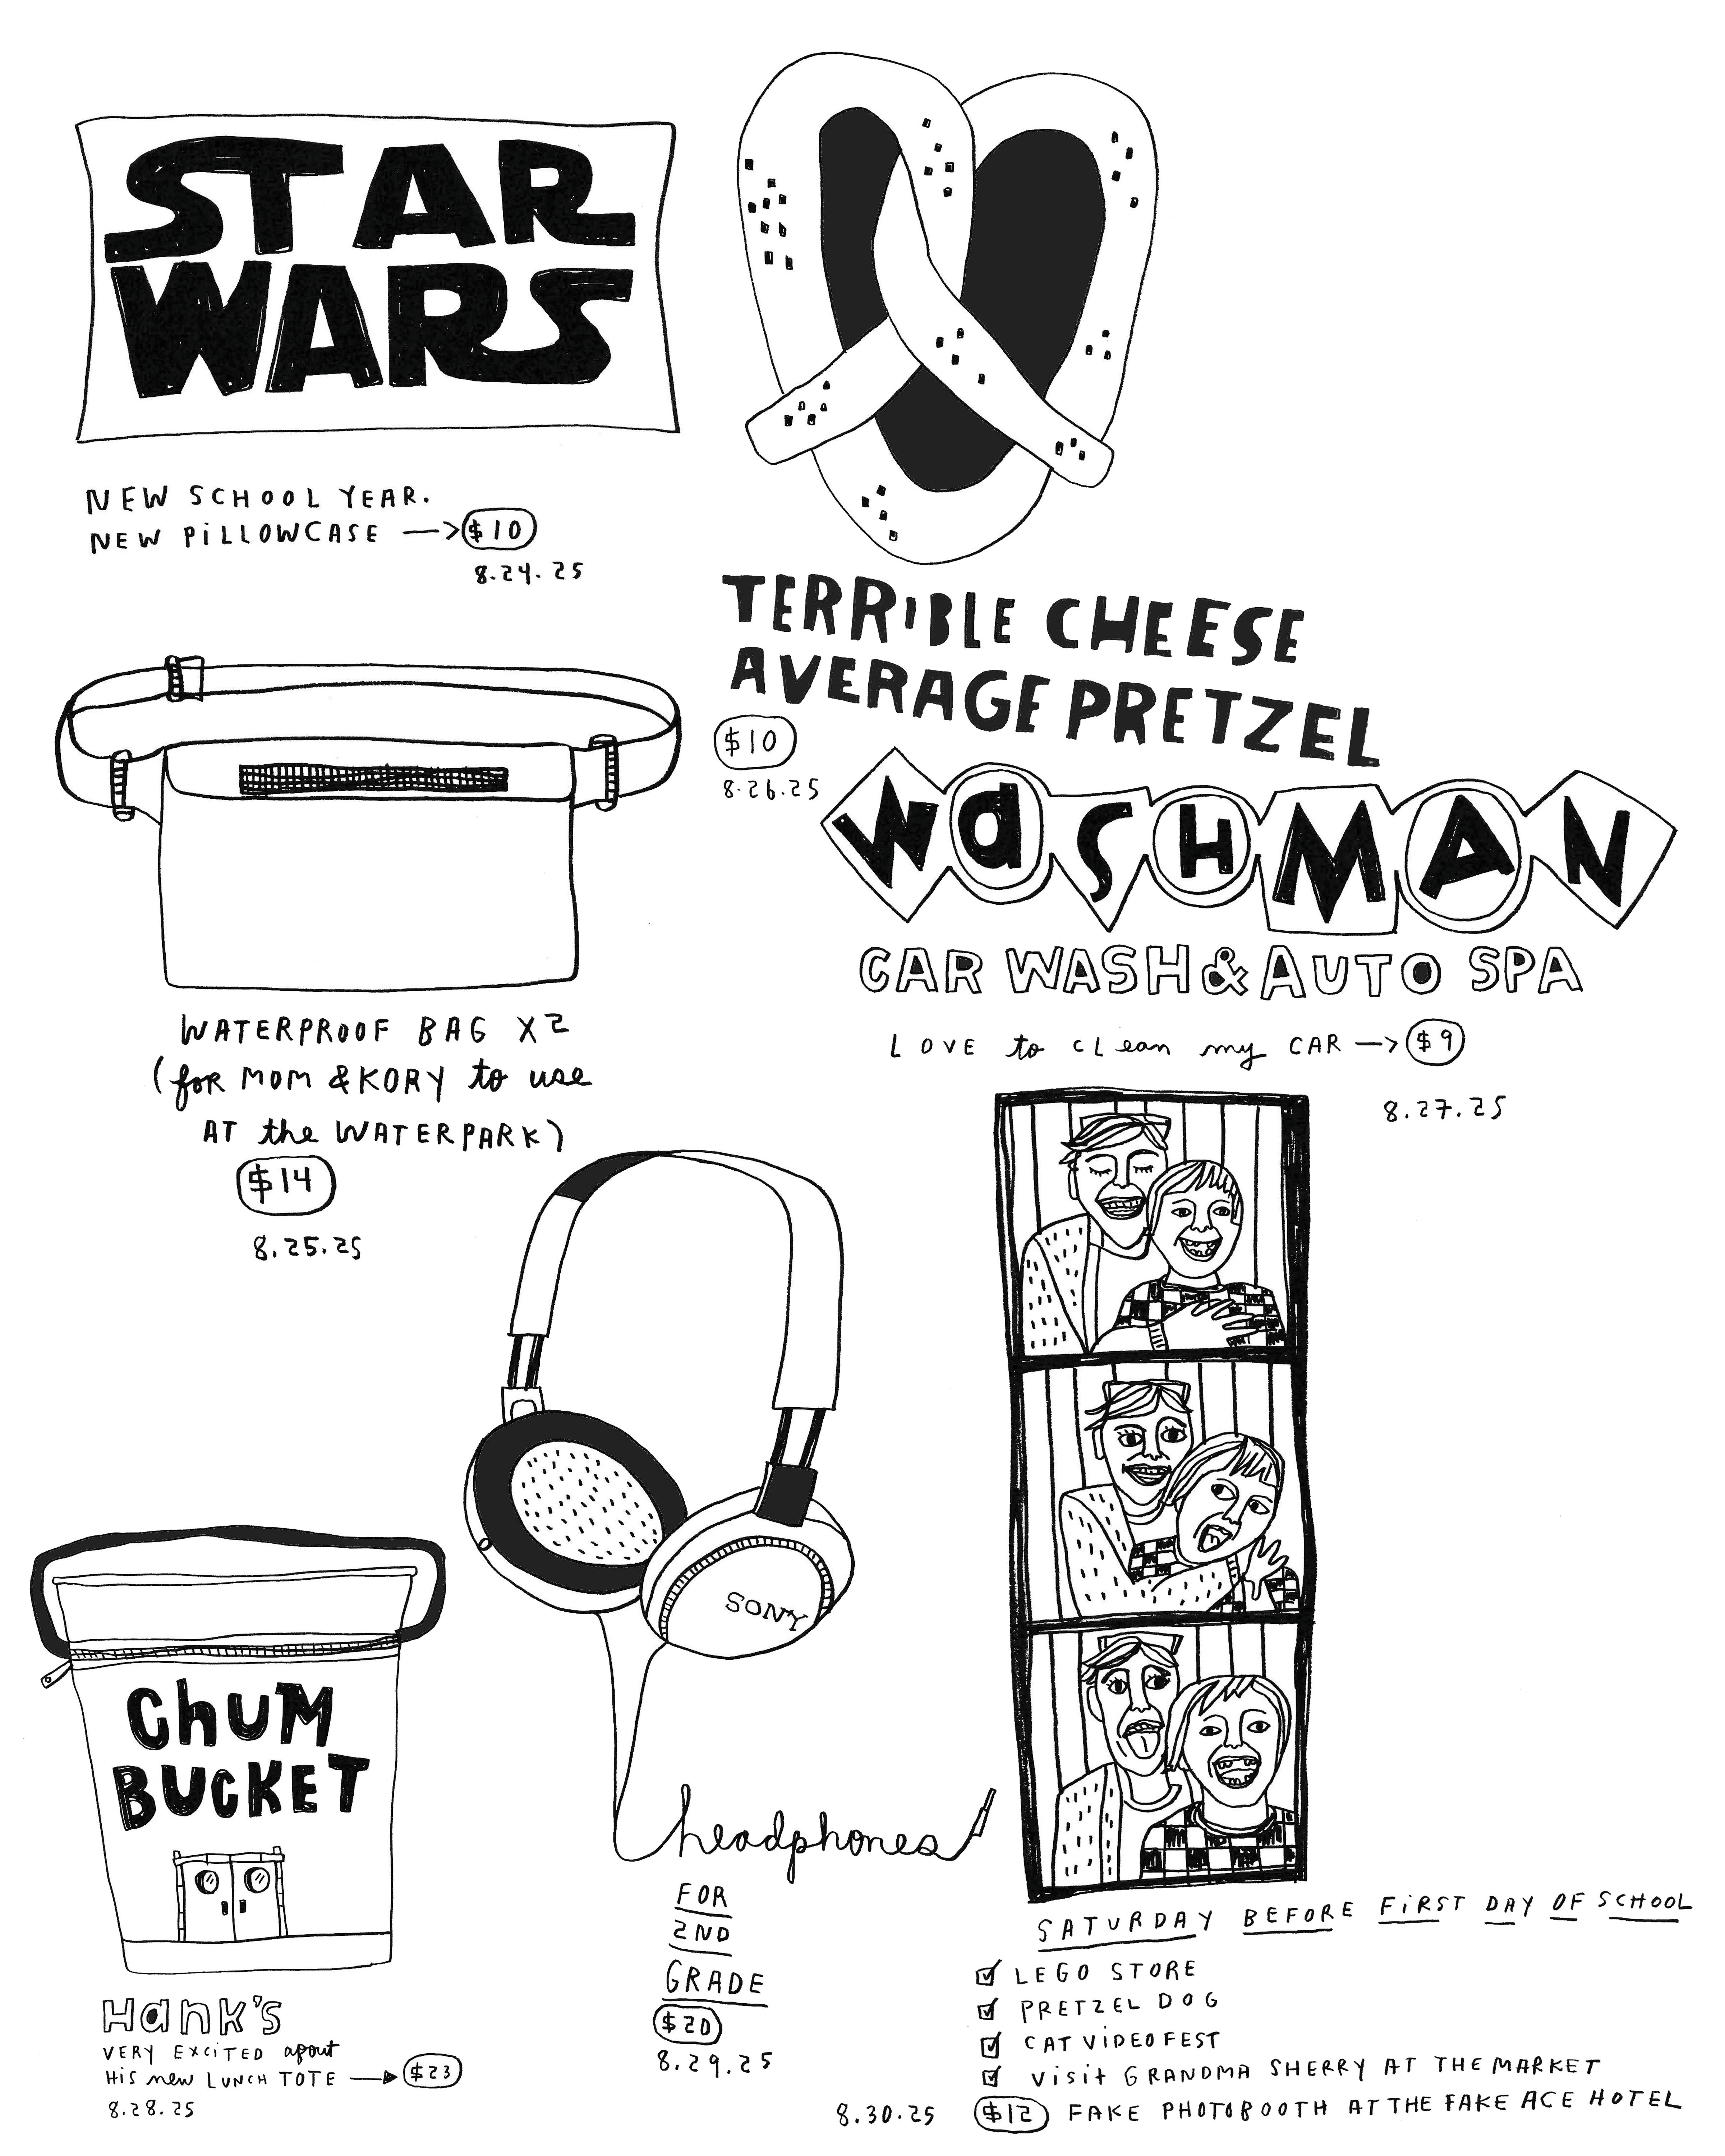 STAR
WARS
NEW SCHOOL YEAR.
NEW PiLLOWCASE —> $10
8.24.25
TERRiBLE CHEESE
AVERAGE PRETZEL
$10
8.26.25
WaSHMAN
CAR WASH & AUTO SPA
LOVE to cLean my CAR —> $9
8.27.25
WATERPROOF BAG X2
(foR MOM & KORY to use
AT the WATERPARK)
$14
8.25.25
SONY
headphones
FOR
2ND
GRADE
$20
8.29.25
ChUM
BUCKET
Hank's
VERY EXCiTED about
HiS new LUNCH TOTE —> $23
8.28.25
SATURDAY BEFORE FiRST DAY OF SCHOOL
☑ LEGO STORE
☑ PRETZEL DOG
☑ CAT ViDEO FEST
☑ Visit GRANDMA SHERRY AT THE MARKET
8.30.25 $12 FAKE PHOTOBOOTH AT THE FAKE ACE HOTEL